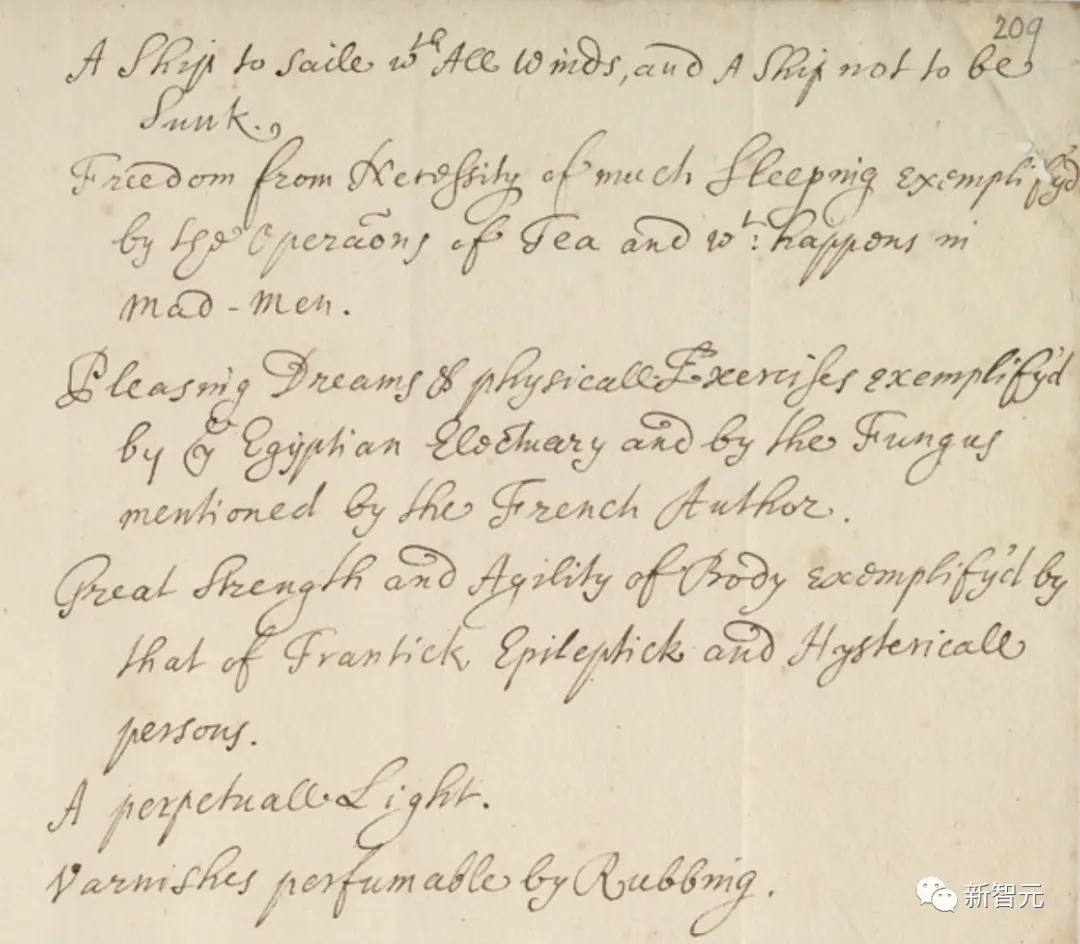 209
A Ship to saile wth All winds, and A Ship not to be
Sunk.
Freedom from Necessity of much Sleeping exemplify'd
by the Operãons of Tea and wt: happens in
mad-men.
Pleasing Dreams & physicall Exercises exemplify'd
by ye Egyptian Electuary and by the Fungus
mentioned by the French Author.
Great Strength and Agility of Body exemplify'd by
that of Frantick Epileptick and Hystericall
persons.
A perpetuall Light.
Varnishes perfumable by Rubbing.
新智元